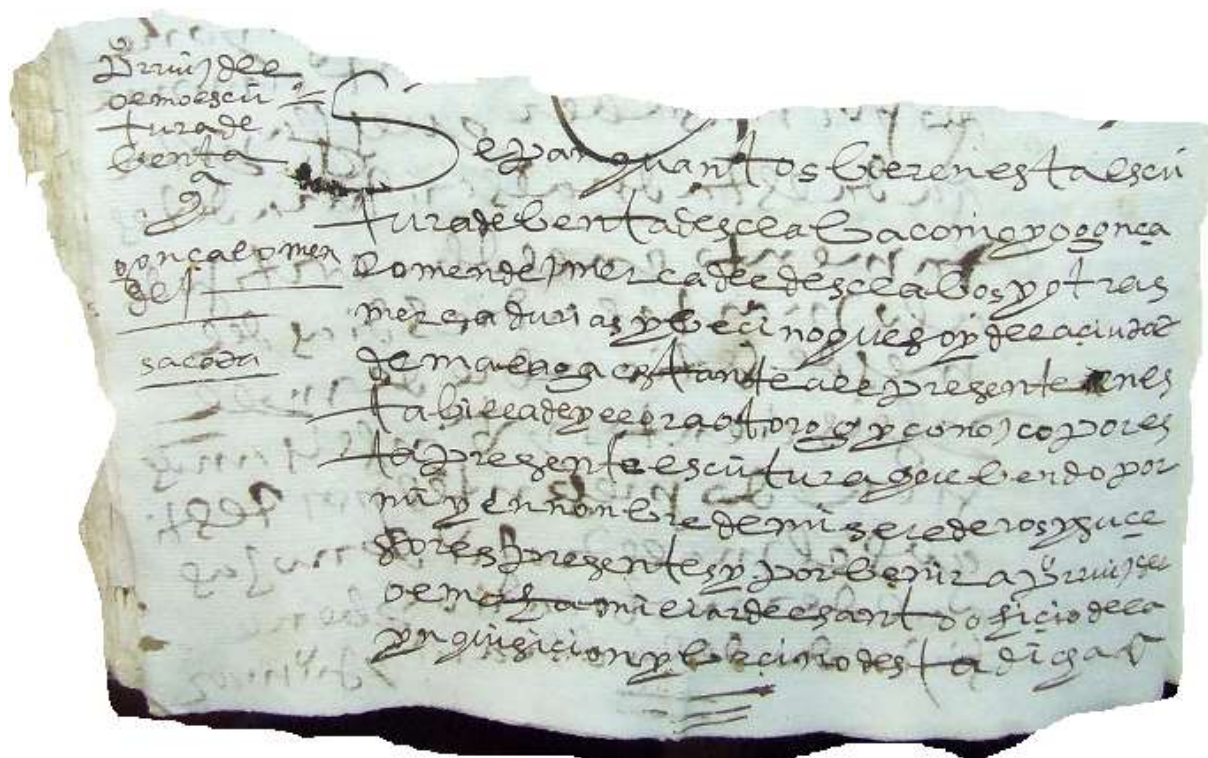 P rruiz de el
olmo escri
tura de
benta
a
gonçalo men
dez
sacada
Sepan quantos bieren esta escri
tura de benta de sclaba como yo gonça
lo mendez mercader de sclabos y otras
mercadurias y becino que soy de la ciudad
de malaga estante al presente en es
ta billa de yllora otorgo y conozco por es
ta presente escritura que bendo por
mi y en nonbre de mis erederos y suce
sores presentes y por benir a p rruiz del
olmo familiar del santo oficio de la
ynquisicion y becino desta